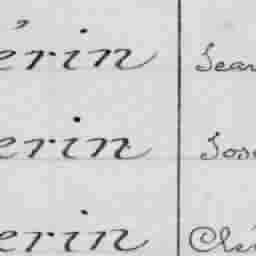 érin Jean
erin Jose
erin Clé